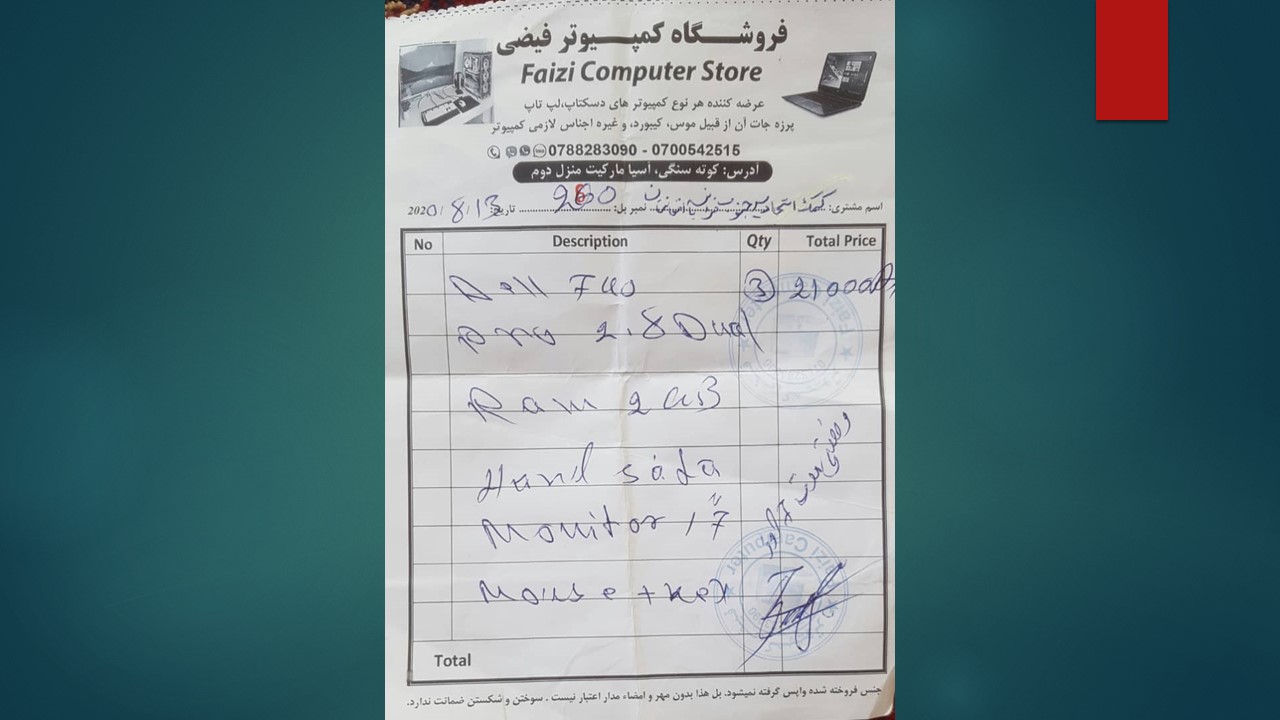 فروشگاه کمپیوتر فیضی
Faizi Computer Store
عرضه کننده هر نوع کمپیوتر های دسکتاپ،لپ تاپ
پرزه جات آن از قبیل موس، کیبورد، و غیره اجناس لازمی کمپیوتر
0788283090 - 0700542515
آدرس: کوته سنگی، آسیا مارکیت منزل دوم
اسم مشتری: کمک نمبر بل: 260 تاریخ: 2020/8/13
No Description Qty Total Price
Dell 740 3 21000
2.8 Dual
Ram 2 GB
Hard sata
Monitor 17"
Mouse +
Total
جنس فروخته شده واپس گرفته نمیشود، بل هذا بدون مهر و امضاء مدار اعتبار نیست ، سوختن و شکستن ضمانت ندارد.